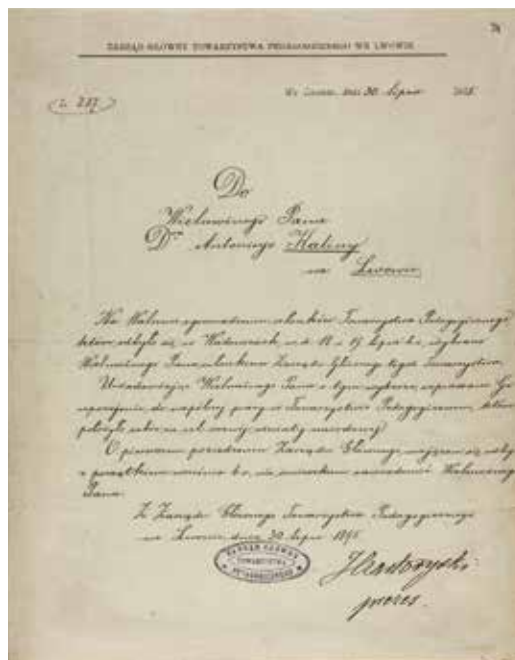 ZARZĄD GŁÓWNY TOWARZYSTWA PEDAGOGICZNEGO WE LWOWIE
We Lwowie, dnia 30. lipca 1895
L. 287
Do
Wielmożnego Pana
Dra Antoniego Kaliny
we Lwowie
Na Walnem zgromadzeniu członków Towarzystwa Pedagogicznego,
które odbyło się w Wadowicach w d. 18 i 19 lipca b.r., wybrano
Wielmożnego Pana członkiem Zarządu Głównego tegoż Towarzystwa.
Uwiadamiając Wielmożnego Pana o tym wyborze, zapraszam Go
uprzejmie do wspólnej pracy w Towarzystwie Pedagogicznem, które
położyło sobie za cel rozwój oświaty narodowej.
O pierwszem posiedzeniu Zarządu Głównego, mającem się odbyć
z początkiem września b.r., nie omieszkam zawiadomić Wielmożnego
Pana.
Z Zarządu Głównego Towarzystwa Pedagogicznego
we Lwowie dnia 30 lipca 1895
ZARZĄD GŁÓWNY
TOWARZYSTWA
PEDAGOGICZNEGO
prezes.